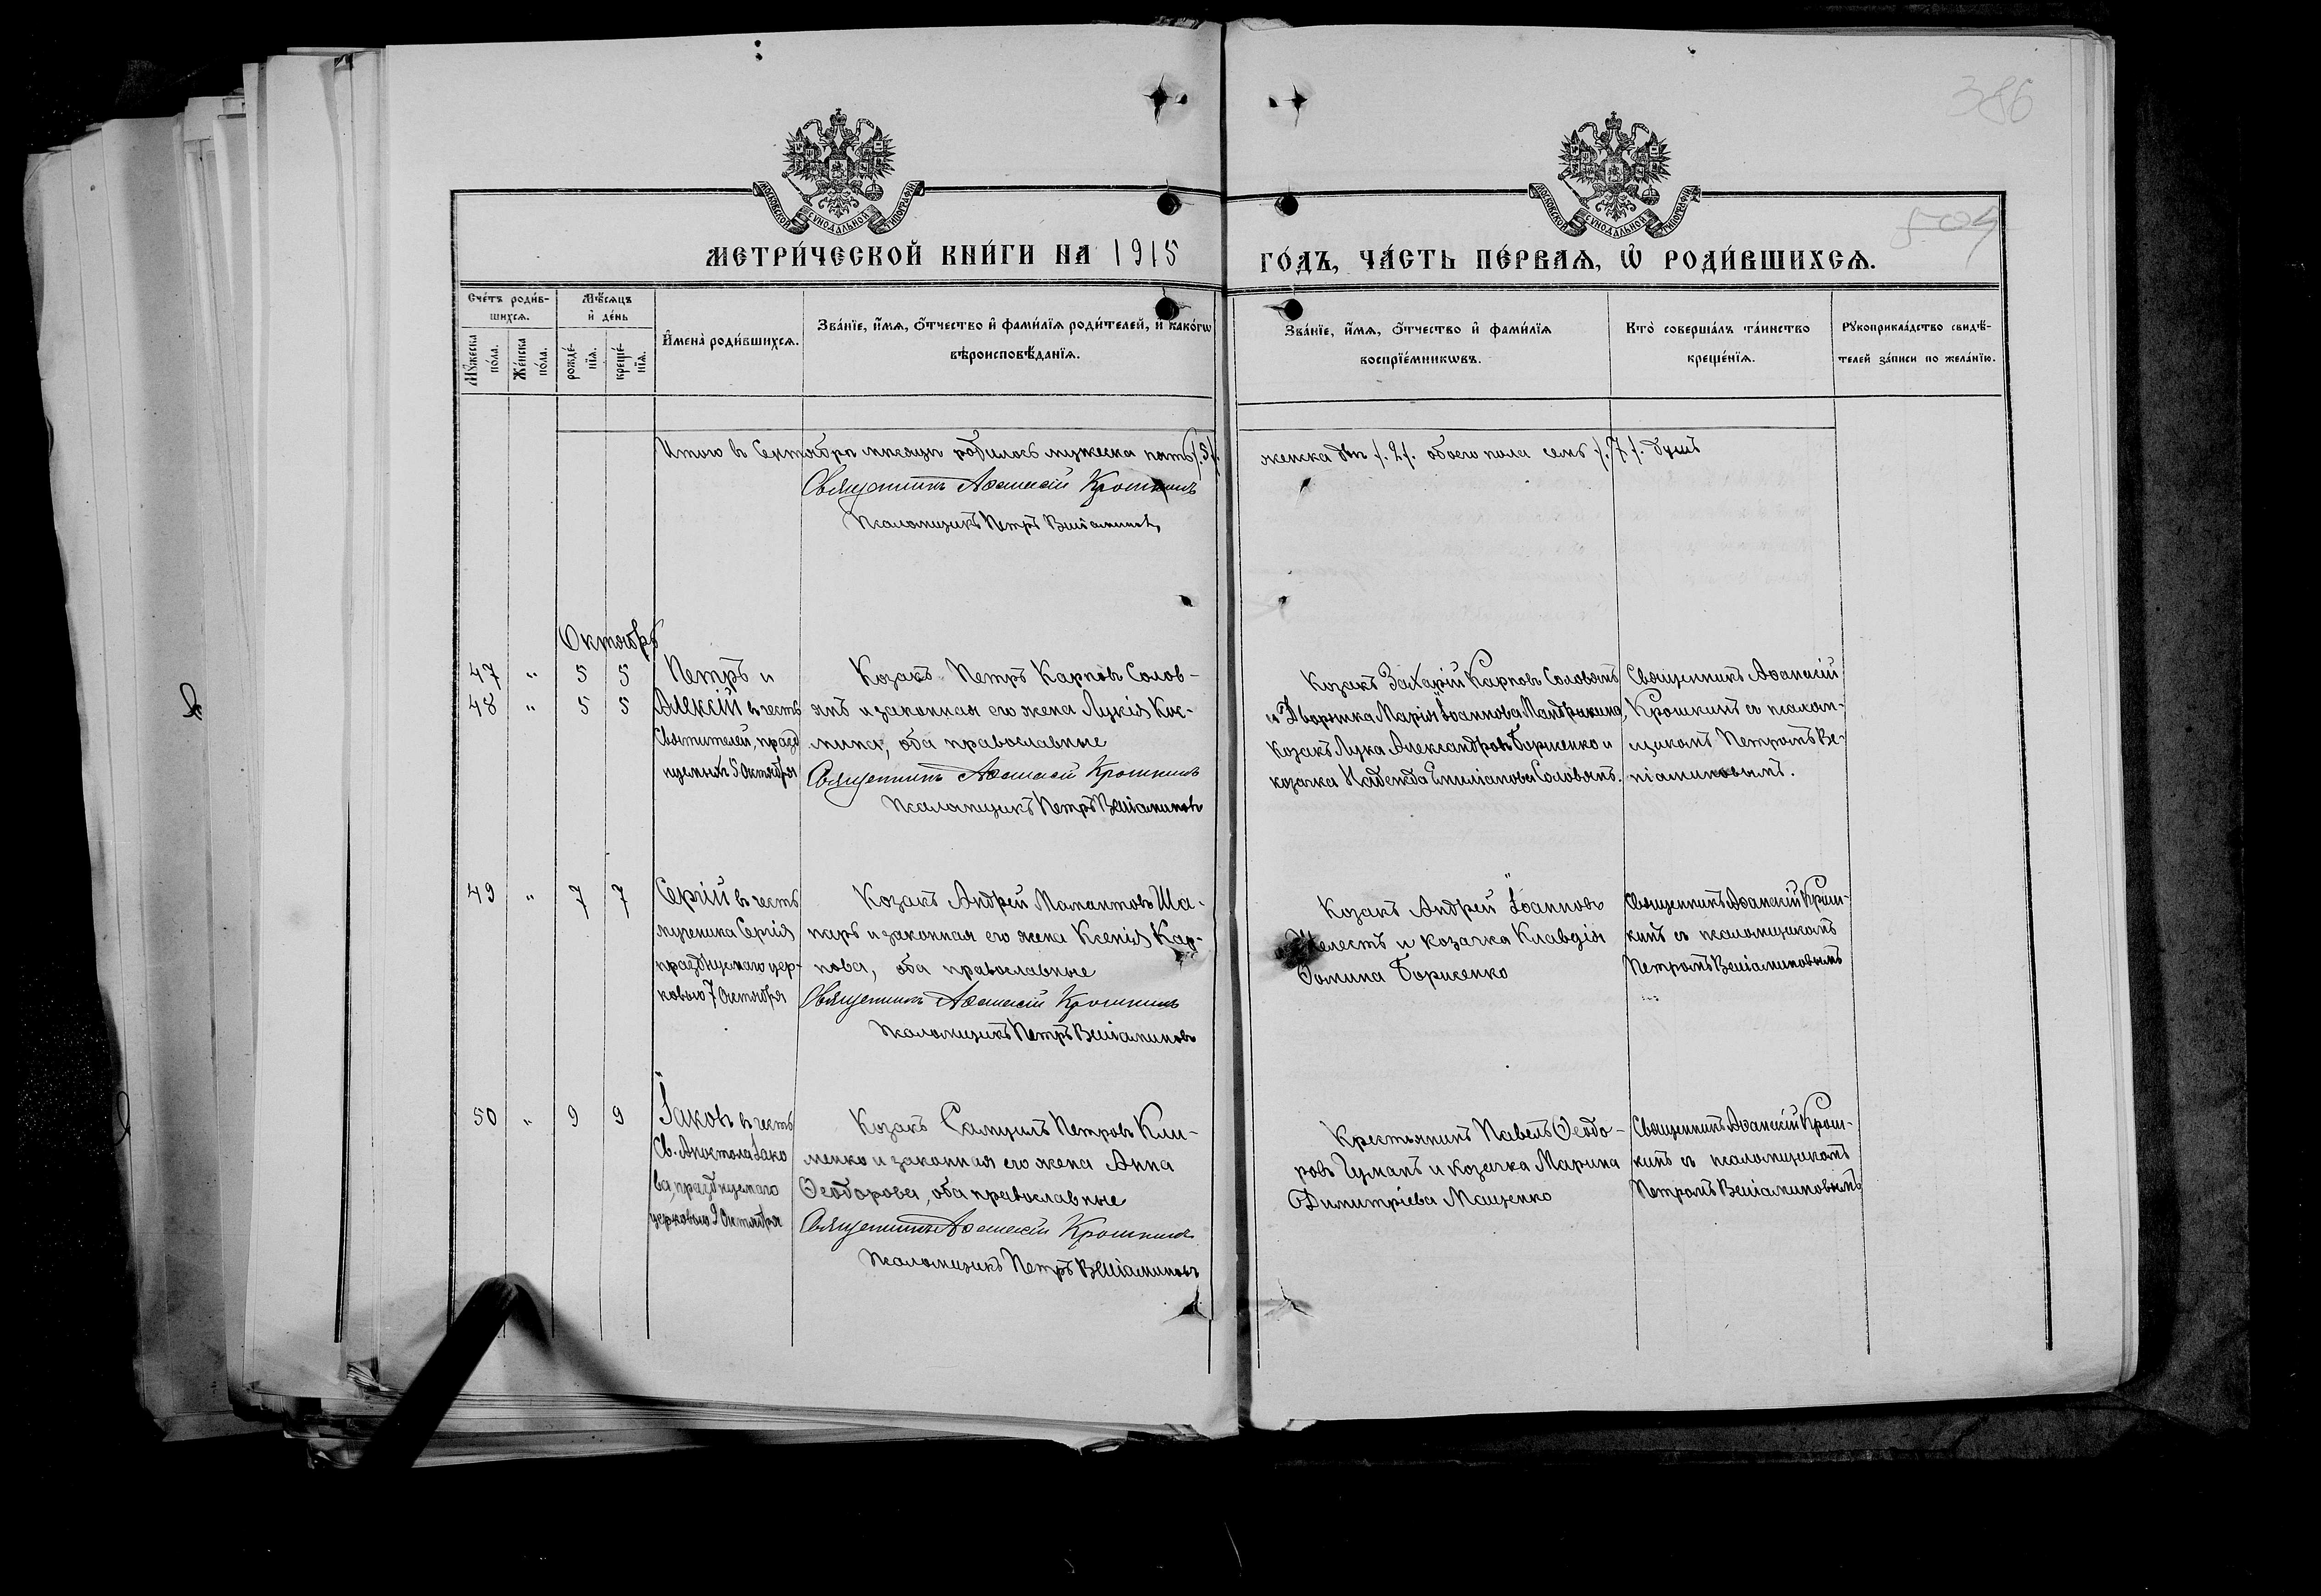 386
504
МОСКОВСКОЙ СѴНОДАЛЬНОЙ ТИПОГРАФІИ
МОСКОВСКОЙ СѴНОДАЛЬНОЙ ТИПОГРАФІИ
МЕТРИ́ЧЕСКОЙ КНИ́ГИ НА 1915
ГО́ДЪ, ЧА́СТЬ ПЕ́РВАѦ, Ѡ҆ РОДИ́ВШИХСѦ.
Сче́тъ роди́в-
шихсѧ.
Мꙋ́жеска
по́ла.
Же́нска
по́ла.
Мѣ́сѧцъ
и҆ де́нь
рожде́-
нїѧ.
креще́-
нїѧ.
И҆мена̀ роди́вшихсѧ.
Зва́нїе, и҆́мѧ, ѻ҆́тчество и҆ фами́лїѧ роди́телей, и҆ како́гѡ
вѣроисповѣ́данїѧ.
Зва́нїе, и҆́мѧ, ѻ҆́тчество и҆ фами́лїѧ
воспрїе́мникѡвъ.
Кто̀ соверша́лъ та́инство
креще́нїѧ.
Рꙋкоприкла́дство свидѣ́-
телей за́писи по жела́нїю.
Итого в Сентябрѣ мѣсяцѣ родилось мужеска пять /.5/.
женска двѣ /.2/. обоего пола семь /.7/. душъ
Священникъ Аѳанасій Крошкинъ
Псаломщикъ Петръ Веніаминовъ
Октябрь
47 " 5 5
48 " 5 5
Петръ и
Алексій въ честь
Святителей, празд
нуемыхъ 5 Октября
Козакъ Петръ Карповъ Солов-
янъ и законная его жена Лукія Кос-
мина, оба православные
Священникъ Аѳанасій Крошкинъ
Псаломщикъ Петръ Веніаминовъ
Козакъ Захарій Карповъ Соловянъ
и Дворянка Марія Іоаннова Мандрыкина,
козакъ Лука Александровъ Борисенко и
козачка Надежда Емиліанова Соловянъ.
Священникъ Аѳанасій
Крошкинъ съ псалом-
щикомъ Петромъ Ве-
ніаминовымъ.
49 " 7 7
Сергій въ честь
мученика Сергія
празднуемаго цер-
ковью 7 Октября
Козакъ Андрей Мамантовъ Ша-
паръ и законная его жена Ксенія Кар-
пова, оба православные
Священникъ Аѳанасій Крошкинъ
Псаломщикъ Петръ Веніаминовъ
Козакъ Андрей Іоанновъ
Шелестъ и козачка Клавдія
Ѳомина Борисенко
Священникъ Аѳанасій Крош-
кинъ съ псаломщикомъ
Петромъ Веніаминовымъ
50 " 9 9
Іаковъ въ честь
Св. Апостола Іако
ва, празднуемаго
церковью 9 Октября
Козакъ Самуилъ Петровъ Кли-
менко и законная его жена Анна
Ѳеодорова, оба православные
Священникъ Аѳанасій Крошкинъ
Псаломщикъ Петръ Веніаминовъ
Крестьянинъ Павелъ Ѳеодо-
ровъ Гуманъ и козачка Марина
Димитріева Мащенко
Священникъ Аѳанасій Крош-
кинъ съ псаломщикомъ
Петромъ Веніаминовымъ